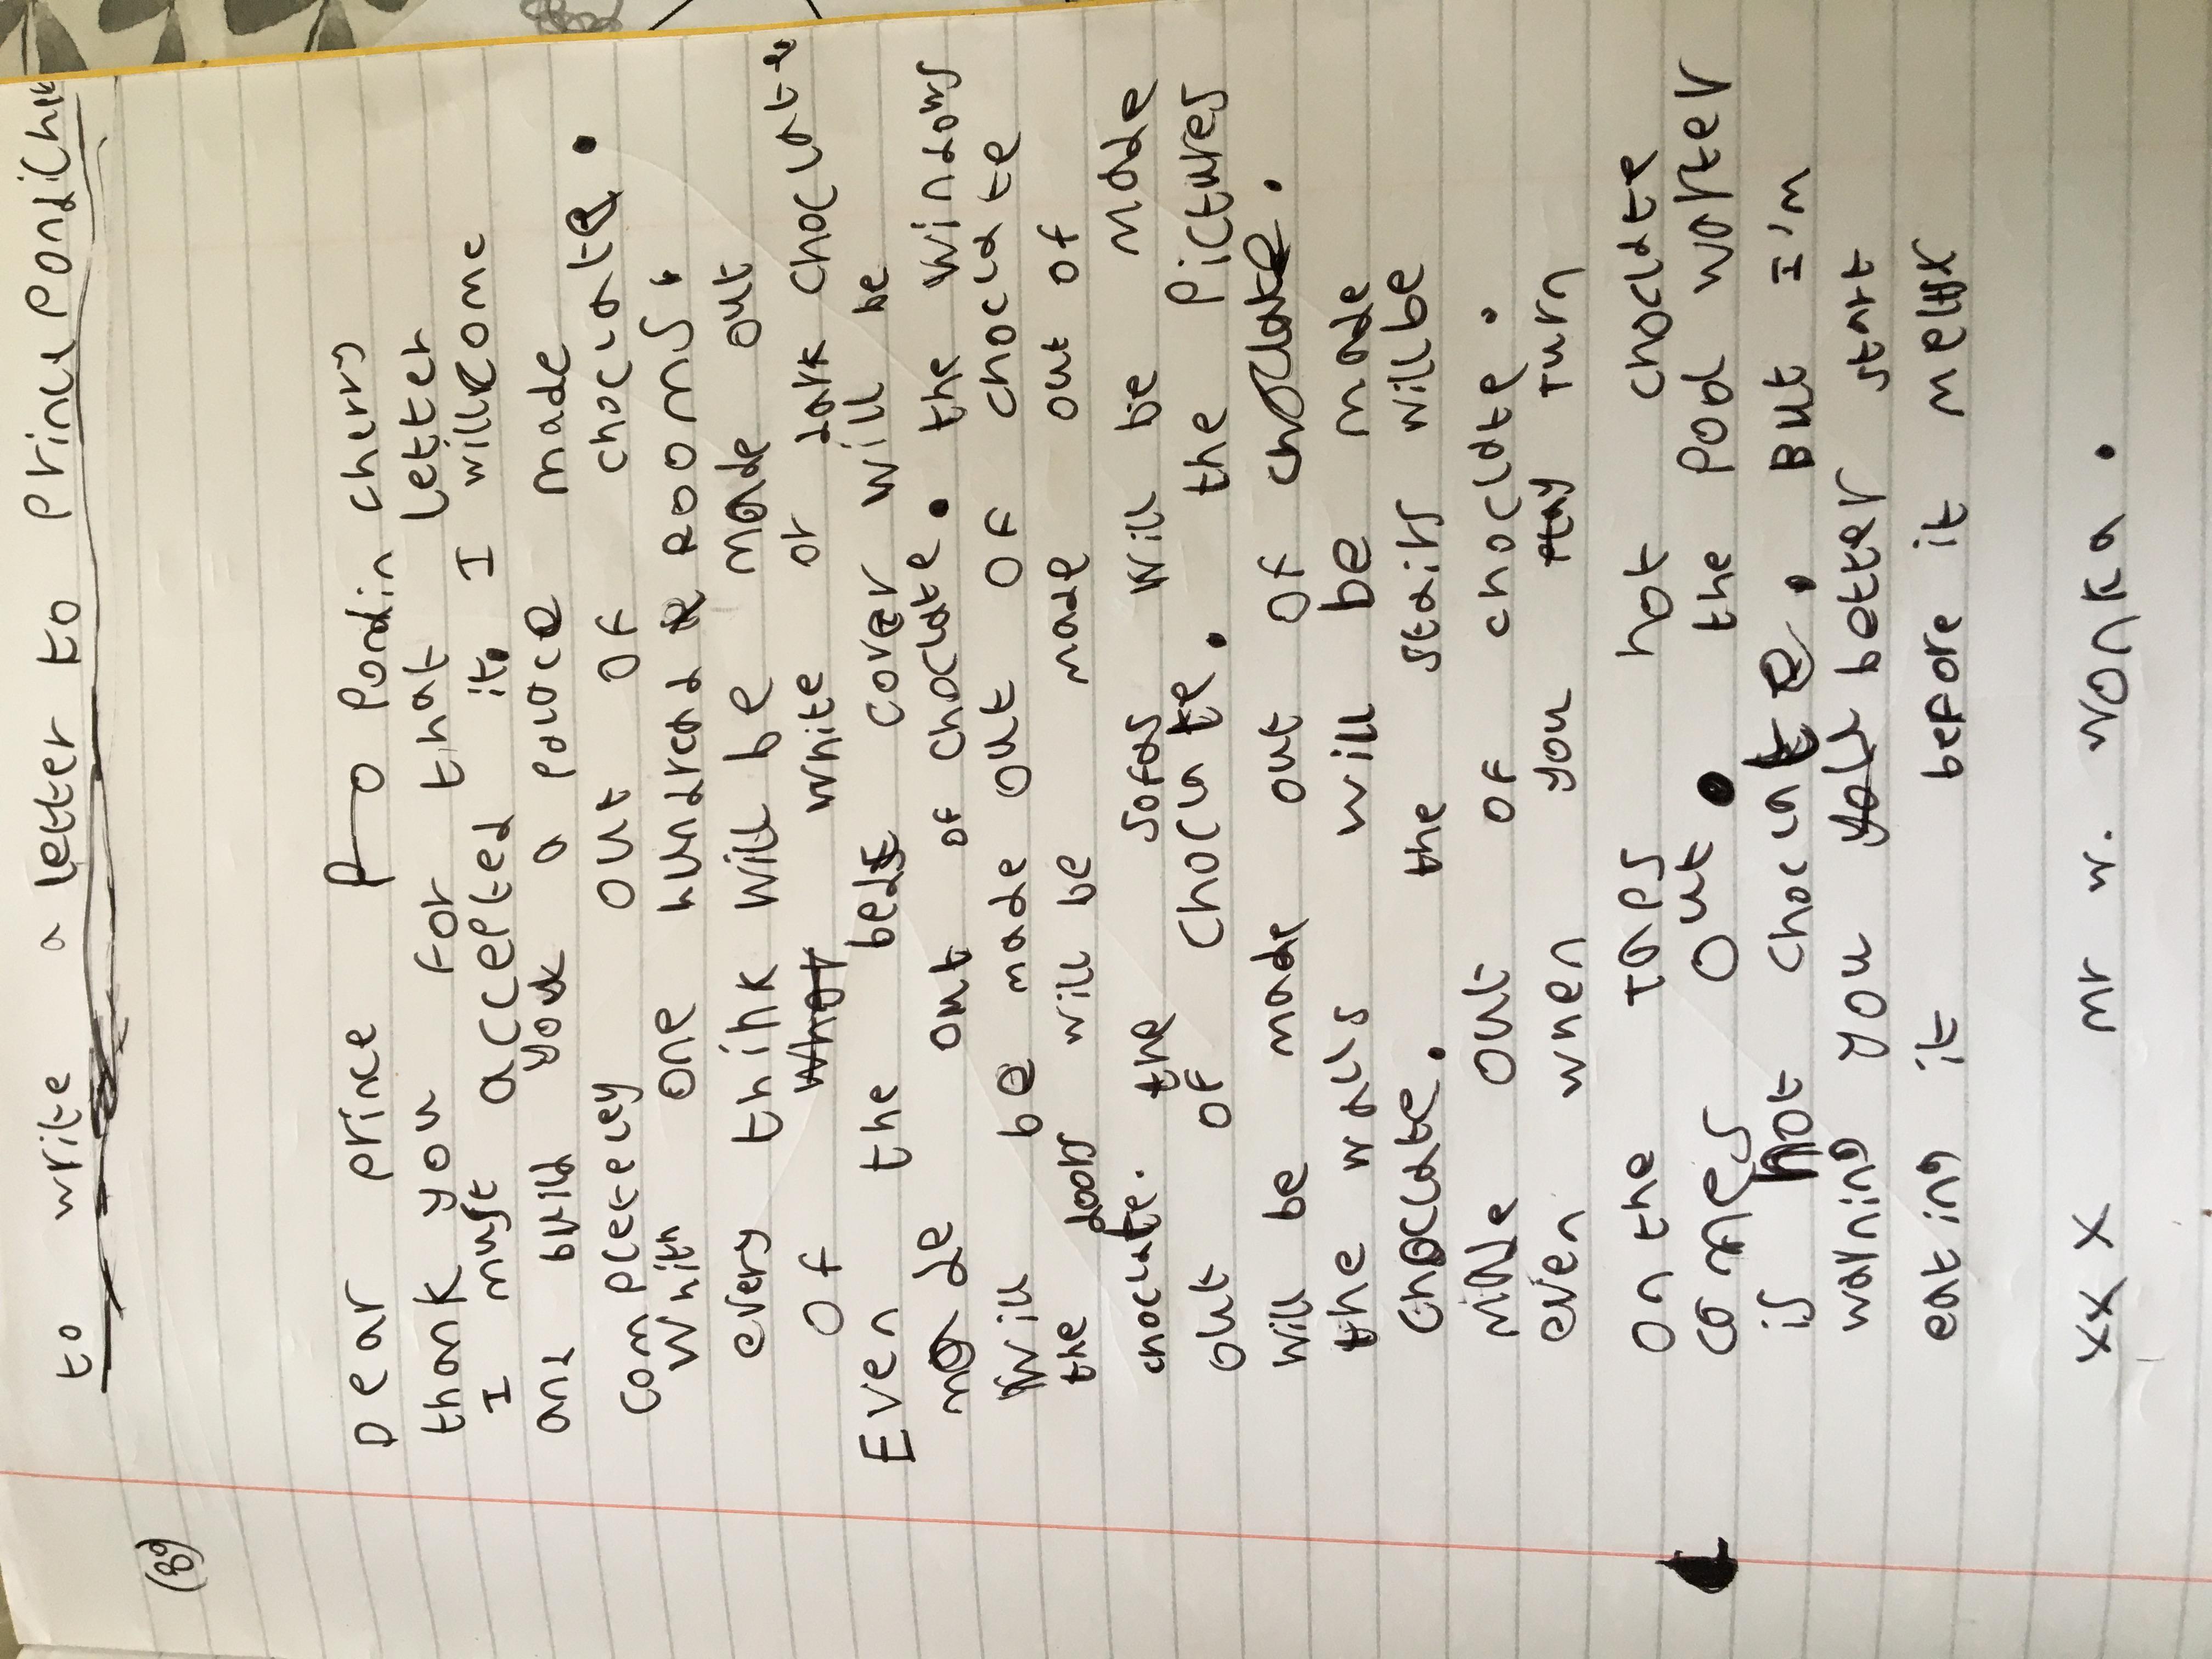 to write a letter to princ pondiChr
(8)
Dear prince pondin cherry
thank you for that letter
I must accepted it. I will come
and build you a palace made
completley out of choclate.
whith one hundred rooms.
every think will be made out
of what white or dark choclate
Even the beds cover will be
made out of choclate. the windows
will be made out of choclate
the doors will be made out of
choclate. the sofas will be made
out of choclate. the pictures
will be made out of choclate.
the walls will be made
choclate. the stairs will be
made out of choclate.
even when you turn
on the taps hot choclate
comes out. the pool worter
is hot choclate. But I'm
warning you better start
eating it before it melts
xxx mr w. wonka.